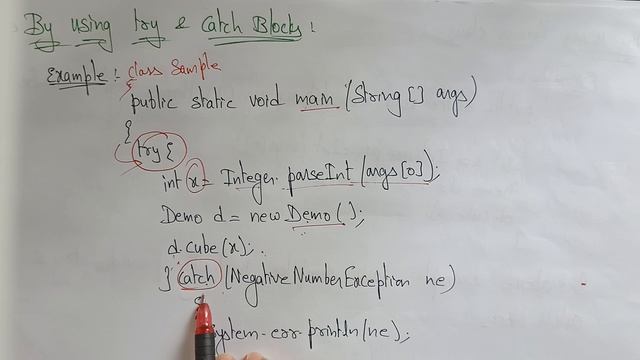 By using try & Catch Blocks :
Example : class Sample
{
public static void main (String [] args)
{
try {
int x = Integer. parseInt (args [0]);
Demo d = new Demo ( );
d.cube (x);
} Catch (NegativeNumberException ne)
{
System.err.println (ne);